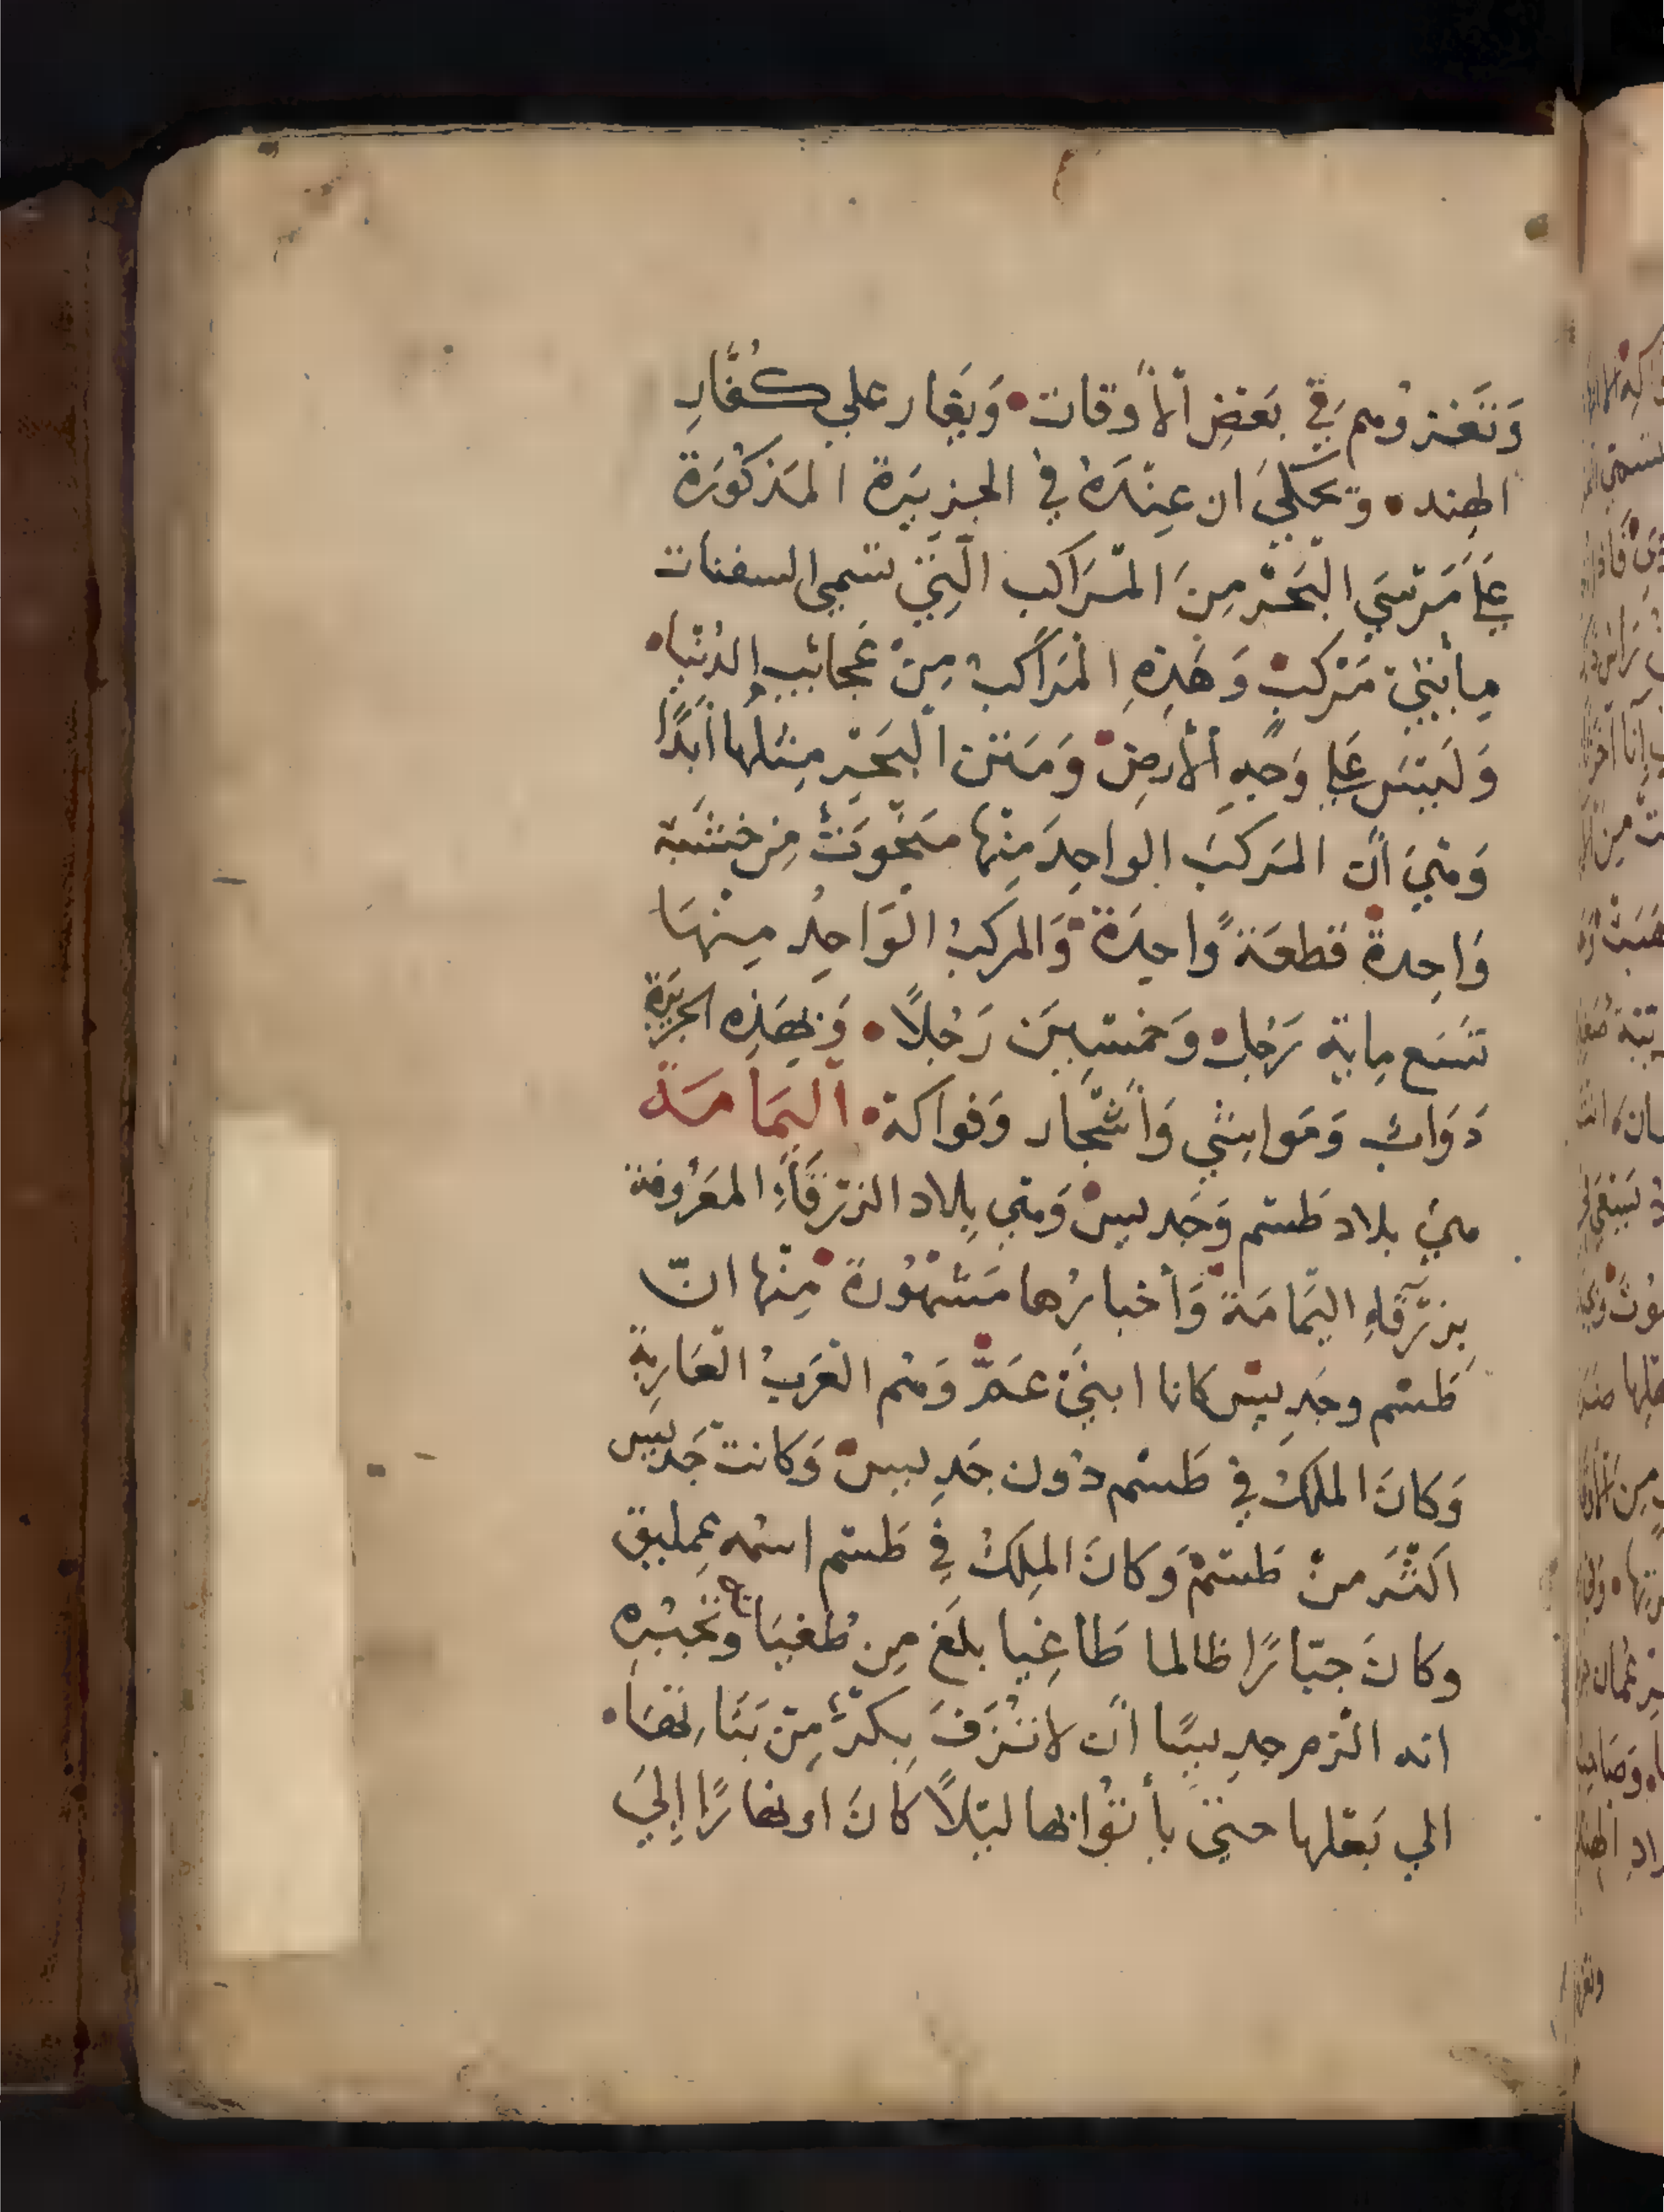 وَتَغْزوُهم فِي بَعْضِ الْأَوْقات • وَيغَار علي كُفَّارِ
الهِند • وَيحكَي ان عِنْدَهُ في الجزيرَة المَذكُورَة
عَلَى مَرْسَي البَحْر مِنَ المَرَاكب الَّتِي تسَمى السفنات
مِأتَيْ مَرْكبْ وَهَذِهِ المَرَاكبْ مِنْ عَجَائِب الدُنْيا •
وَلَيْسَ عَلَى وَجهِ الْأَرضْ وَمَتن البَحْر مِثلها أبَدًا
وَهيَ أن المَركَبَ الواحِدَ مِنْها مَنْحُوتٌ مِن خشَبَة
وَاحِدة قطعَةً واحِدَة وَالمركبُ الوَاحِدِ مِنْهَا
تَسَع مِاية رَجُل وَخمسِينَ رَجُلًا • وَبهَذِه الجزيرَة
دَوَاب وَمَوَاشي وَأشْجَار وَفواكة • الْيَمَامَة
هي بلاد طَسْم وَجَديس وَهي بِلاد الزرْقَاءِ المَعرُوفة
بِزَرْقَاءِ اليَمَامَة وَأخبارُها مَشهُورَة مِنْها انّ
طَسْم وجَدِيسْ كانا ابنَيْ عَمّ وَهُم العَربُ العَارِبة
وَكانَ الملكُ في طَسْم دُون جَدِيسْ وَكانت جَديس
اكثَر منْ طَسْمْ وَكانَ المِلكُ فِي طَسْم اسْمه عِمليق
وكانَ جبّارًا ظالما طَاغِيا بلَغ مِن طُغيَانه وَتجبُّرِه
انه الْزم جدِيسًا أن لا تُزَفَّ بِكرٌ مِنْ بَنَاتهَا •
الي بَعْلها حتيَ يأتُوا بها ليْلًا كانَ او نهارًا إليَ